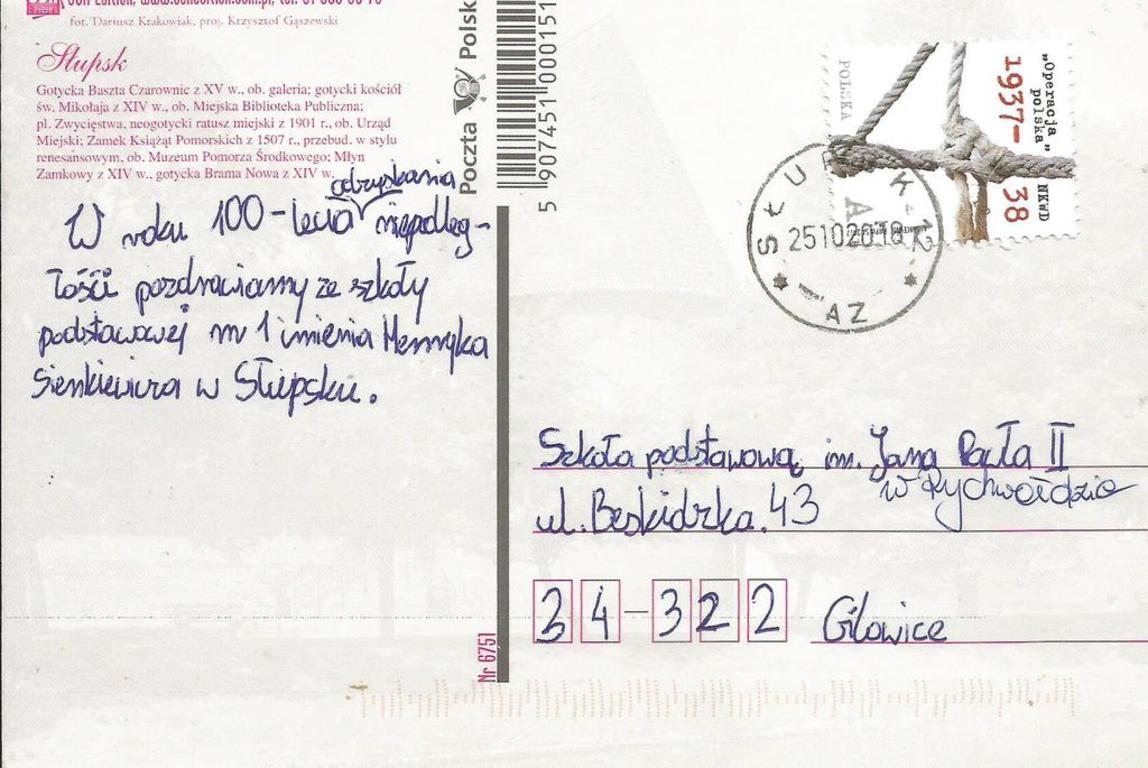 fot. Dariusz Krakowiak, proj. Krzysztof Gąszewski
Słupsk
Gotycka Baszta Czarownic z XV w., ob. galeria; gotycki kościół
św. Mikołaja z XIV w., ob. Miejska Biblioteka Publiczna;
pl. Zwycięstwa, neogotycki ratusz miejski z 1901 r., ob. Urząd
Miejski; Zamek Książąt Pomorskich z 1507 r., przebud. w stylu
renesansowym, ob. Muzeum Pomorza Środkowego; Młyn
Zamkowy z XIV w., gotycka Brama Nowa z XIV w.
W roku 100-lecia odzyskania niepodleg-
łości pozdrawiamy ze szkoły
podstawowej nr 1 imienia Henryka
Sienkiewicza w Słupsku.
Nr 6751
Poczta Polsk
5 907451 000151
POLSKA
A
„Operacja
polska”
NKWD
1937-
38
SŁUPSK 1
25102018
AZ
Szkoła podstawową im. Jana Pawła II
w Rychwałdzie
ul. Beskidzka. 43
34-322 Gilowice